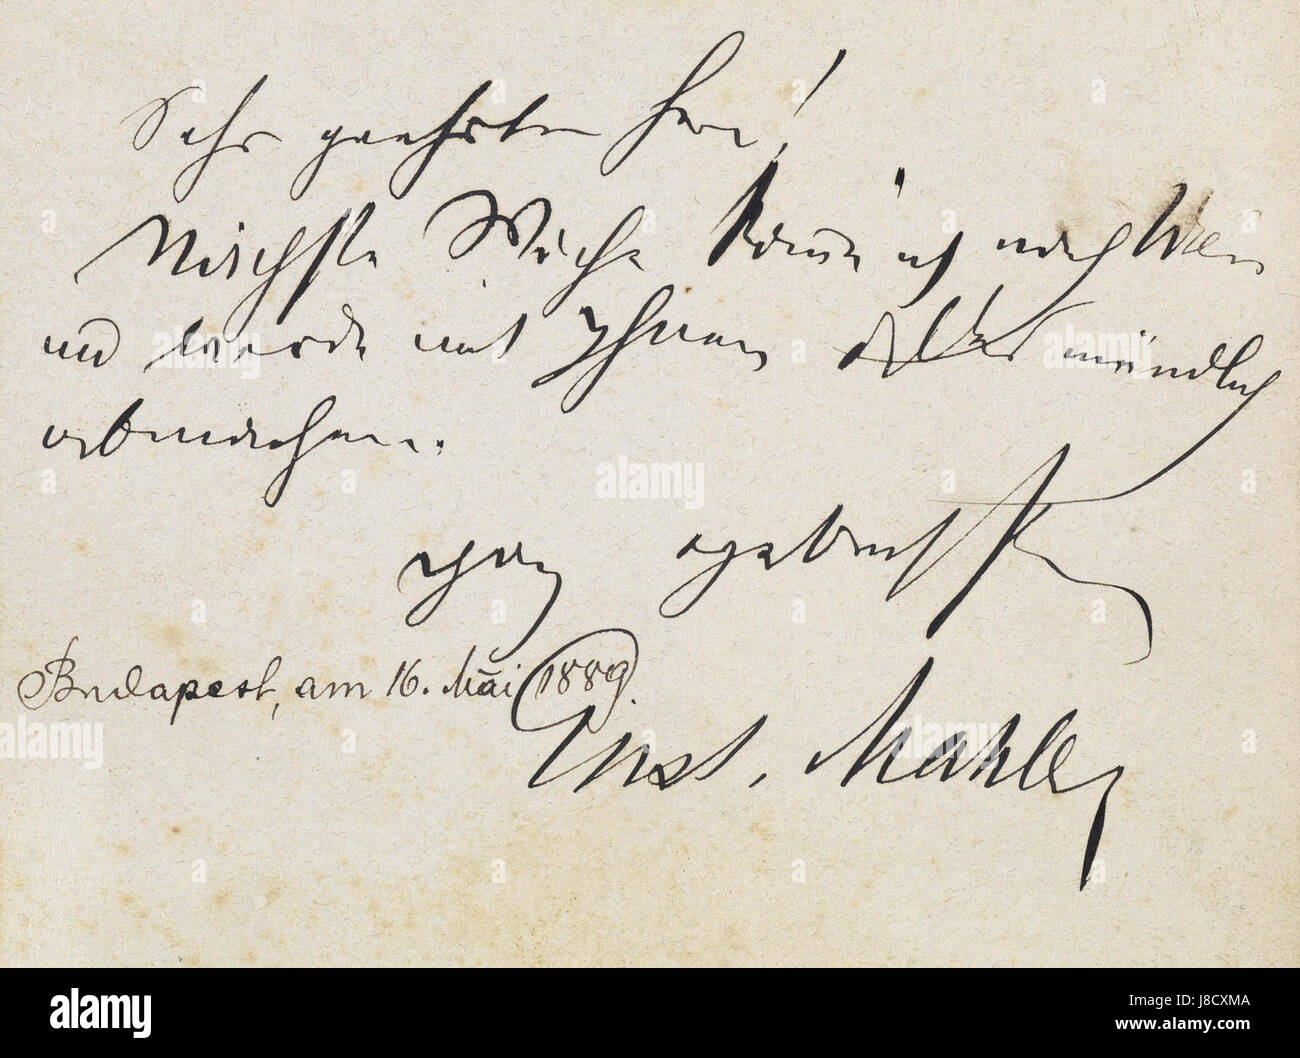 Sehr geehrter Herr!
Nächste Woche komme ich nach Wien
und werde mit Ihnen alles mündlich
abmachen.
Ganz ergebenst
Budapest, am 16. Mai 1889.
Gust. Mahler
alamy
Image ID: J8CXMA
www.alamy.com